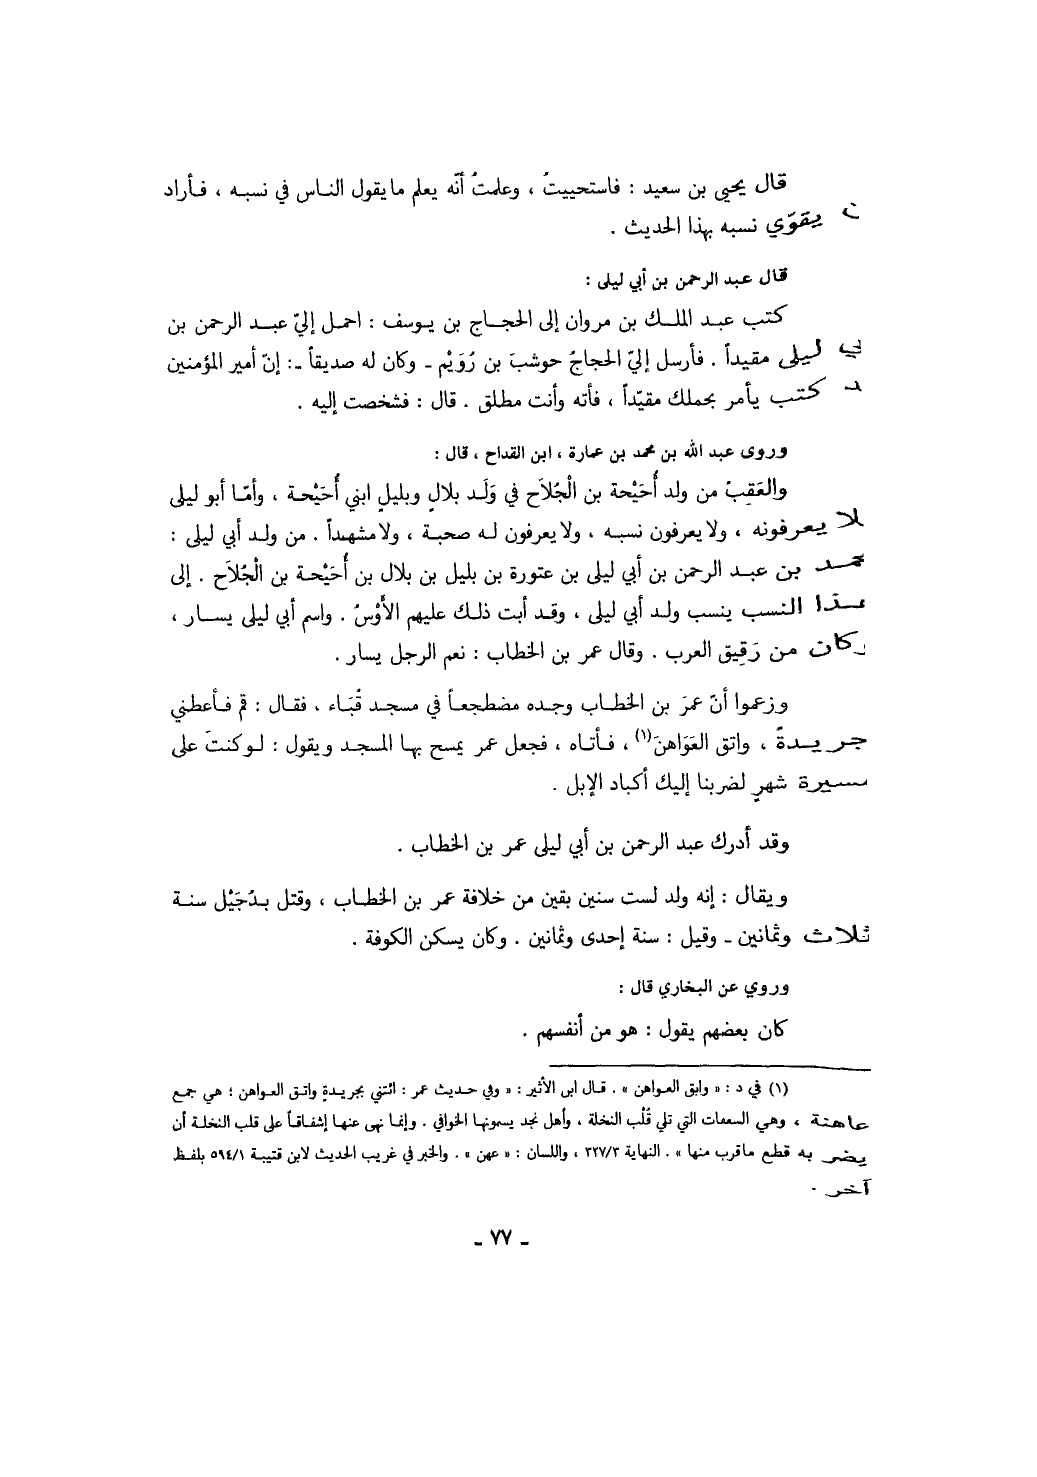 قال يحيى بن سعيد : فاستحييتُ ، وعلمتُ أنّه يعلم ما يقول الناس في نسبه ، فأراد
ن يقوّي نسبه بهذا الحديث .
قال عبد الرحمن بن أبي ليلى :
كتب عبد الملك بن مروان إلى الحجاج بن يوسف : احمل إليّ عبد الرحمن بن
بي ليلى مقيداً . فأرسل إليّ الحجاجُ حوشبَ بن رُوَيْم ـ وكان له صديقاً ـ: إنّ أمير المؤمنين
د كتب يأمر بحملك مقيّداً ، فأته وأنت مطلق . قال : فشخصت إليه .
وروى عبد الله بن محمد بن عمارة ، ابن القداح ، قال :
والعَقِبُ من ولد أُحَيْحة بن الْجُلاَح في وَلَد بلالٍ وبليلٍ ابني أُحَيْحة ، وأمّا أبو ليلى
لا يعرفونه ، ولا يعرفون نسبه ، ولا يعرفون له صحبة ، ولا مشهداً . من ولد أبي ليلى :
محمد بن عبد الرحمن بن أبي ليلى بن عتورة بن بليل بن بلال بن أُحَيْحة بن الْجُلاَح . إلى
هذا النسب ينسب ولد أبي ليلى ، وقد أبت ذلك عليهم الأَوْسُ . واسم أبي ليلى يسار ،
وكان من رَقِيق العرب . وقال عمر بن الخطاب : نعم الرجل يسار .
وزعموا أنّ عمرَ بن الخطاب وجده مضطجعاً في مسجد قُبَاء ، فقال : قم فأعطني
جريدةً ، واتق العَوَاهنَ(١) ، فأتاه ، فجعل عمر يمسح بها المسجد ويقول : لو كنتَ على
مسيرة شهرٍ لضربنا إليك أكباد الإبل .
وقد أدرك عبد الرحمن بن أبي ليلى عمر بن الخطاب .
ويقال : إنه ولد لست سنين بقين من خلافة عمر بن الخطاب ، وقتل بدُجَيْل سنة
ثلاث وثمانين ـ وقيل : سنة إحدى وثمانين . وكان يسكن الكوفة .
وروي عن البخاري قال :
كان بعضهم يقول : هو من أنفسهم .
(١) في د : « وابق العواهن » . قال ابن الأثير : « وفي حديث عمر : ائتني بجريدةٍ واتق العواهن ؛ هي جمع
عاهنة ، وهي السعفات التي تلي قُلْب النخلة ، وأهل نجد يسمونها الخوافي . وإنما نهى عنها إشفاقاً على قلب النخلة أن
يضر به قطع ما قرب منها » . النهاية ٣٢٧/٣ ، واللسان : « عهن » . والخبر في غريب الحديث لابن قتيبة ٥٩٤/١ بلفظ
آخر .
ـ ٧٧ ـ